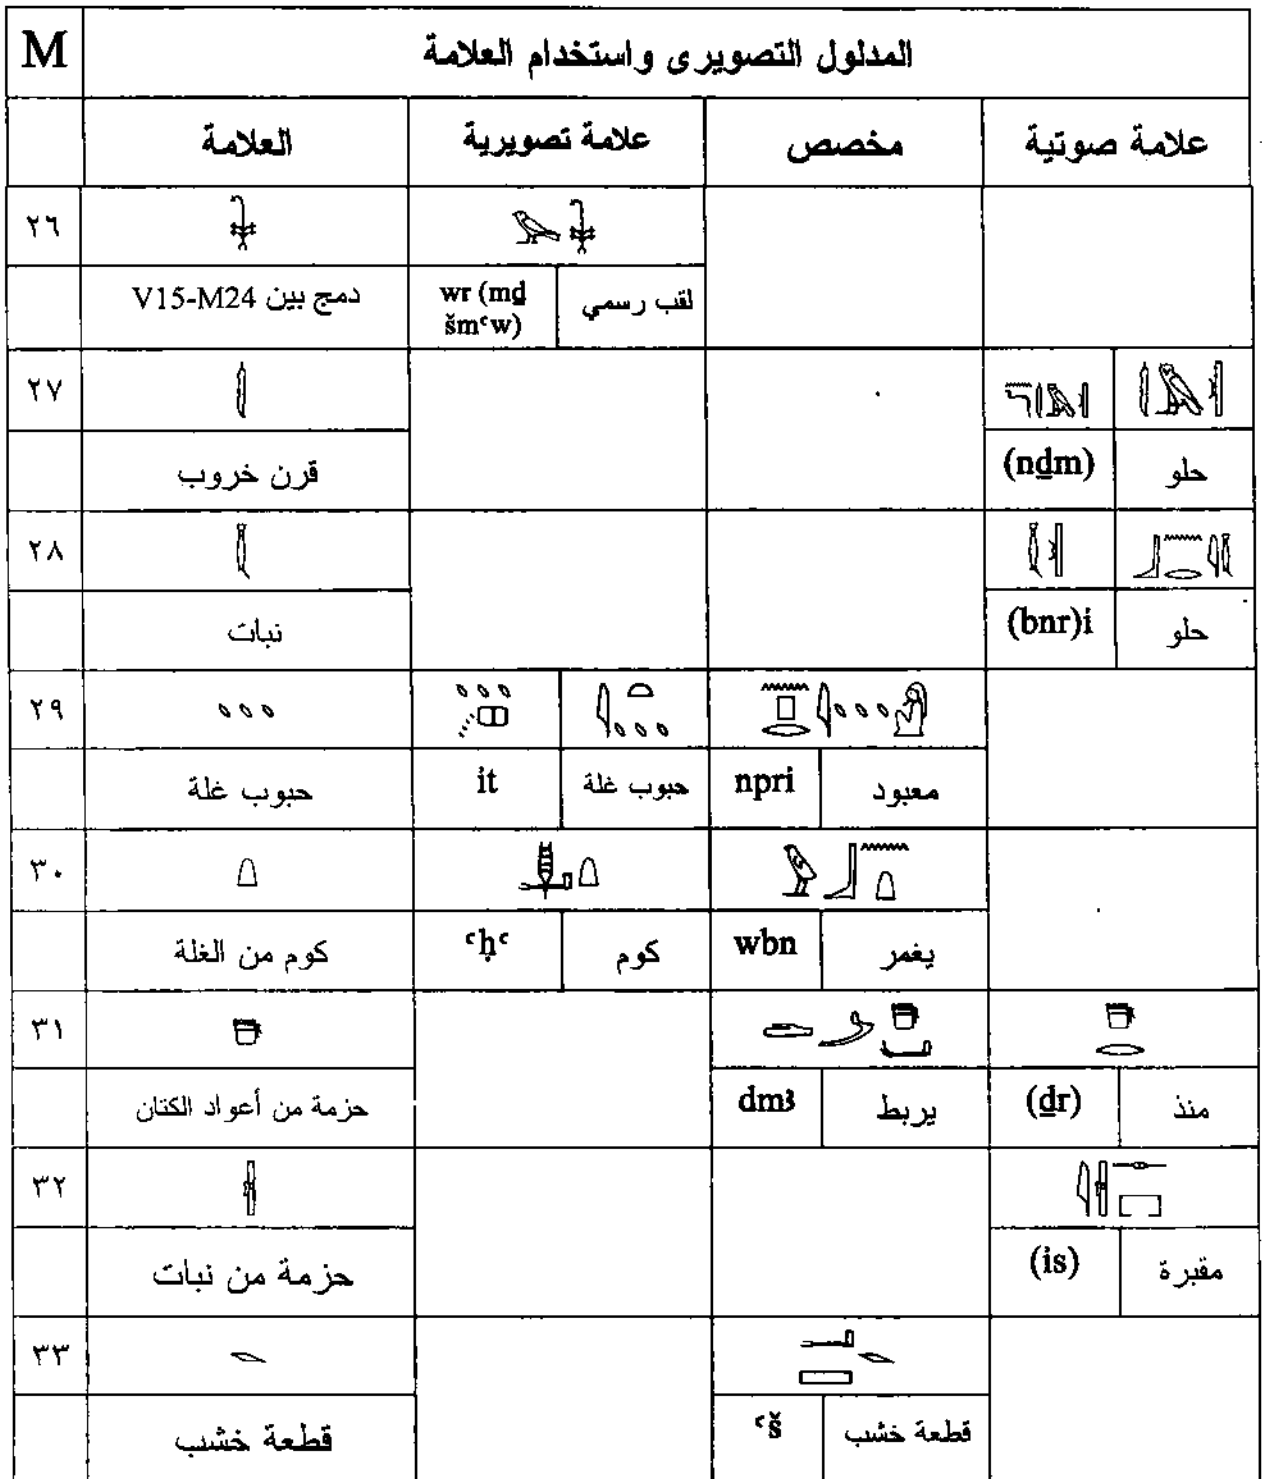 M المدلول التصويرى واستخدام العلامة
العلامة علامة تصويرية مخصص علامة صوتية
٢٦
دمج بين V15-M24 wr (mḏ šmꜥw) لقب رسمي
٢٧
قرن خروب (nḏm) حلو
٢٨
نبات (bnr)i حلو
٢٩
حبوب غلة it حبوب غلة npri معبود
٣٠
كوم من الغلة ꜥḥꜥ كوم wbn يغمر
٣١
حزمة من أعواد الكتان dmꜣ يربط (ḏr) منذ
٣٢
حزمة من نبات (is) مقبرة
٣٣
قطعة خشب ꜥš قطعة خشب